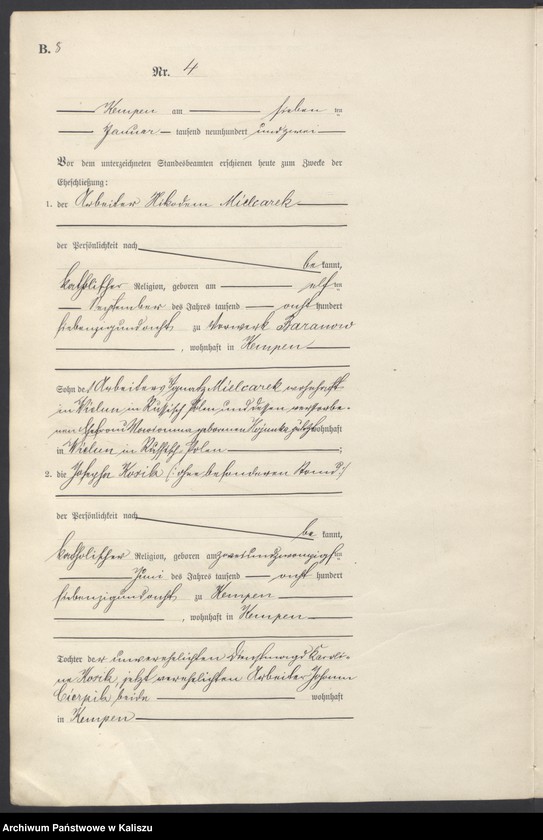 B. 8
Nr. 4
Kempen am sieben ten
Januar tausend neunhundert und zwei
Vor dem unterzeichneten Standesbeamten erschienen heute zum Zwecke der
Eheschließung:
1. der Arbeiter Nikodem Mielcarek
der Persönlichkeit nach
be kannt,
katholischer Religion, geboren am elf ten
September des Jahres tausend acht hundert
siebenzig und acht zu Vorwerk Baranow
, wohnhaft in Kempen
Sohn des Arbeiters Ignatz Mielcarek wohnhaft
in Wielun in Russisch Polen und dessen verstorbe-
nen Ehefrau Marianna geborenen wohnhaft
in Wielun in Russisch Polen ;
2. die Josepha Kosik (: ohne besonderen Stand :)
der Persönlichkeit nach
be kannt,
katholischer Religion, geboren am zweiundzwanzigs ten
Juni des Jahres tausend acht hundert
siebenzig und acht zu Kempen
, wohnhaft in Kempen
Tochter der unverehelichten Dienstmagd Karoli-
ne Kosik, jetzt verehelichten Arbeiter Johann
Cierpik beide wohnhaft
in Kempen
Archiwum Państwowe w Kaliszu